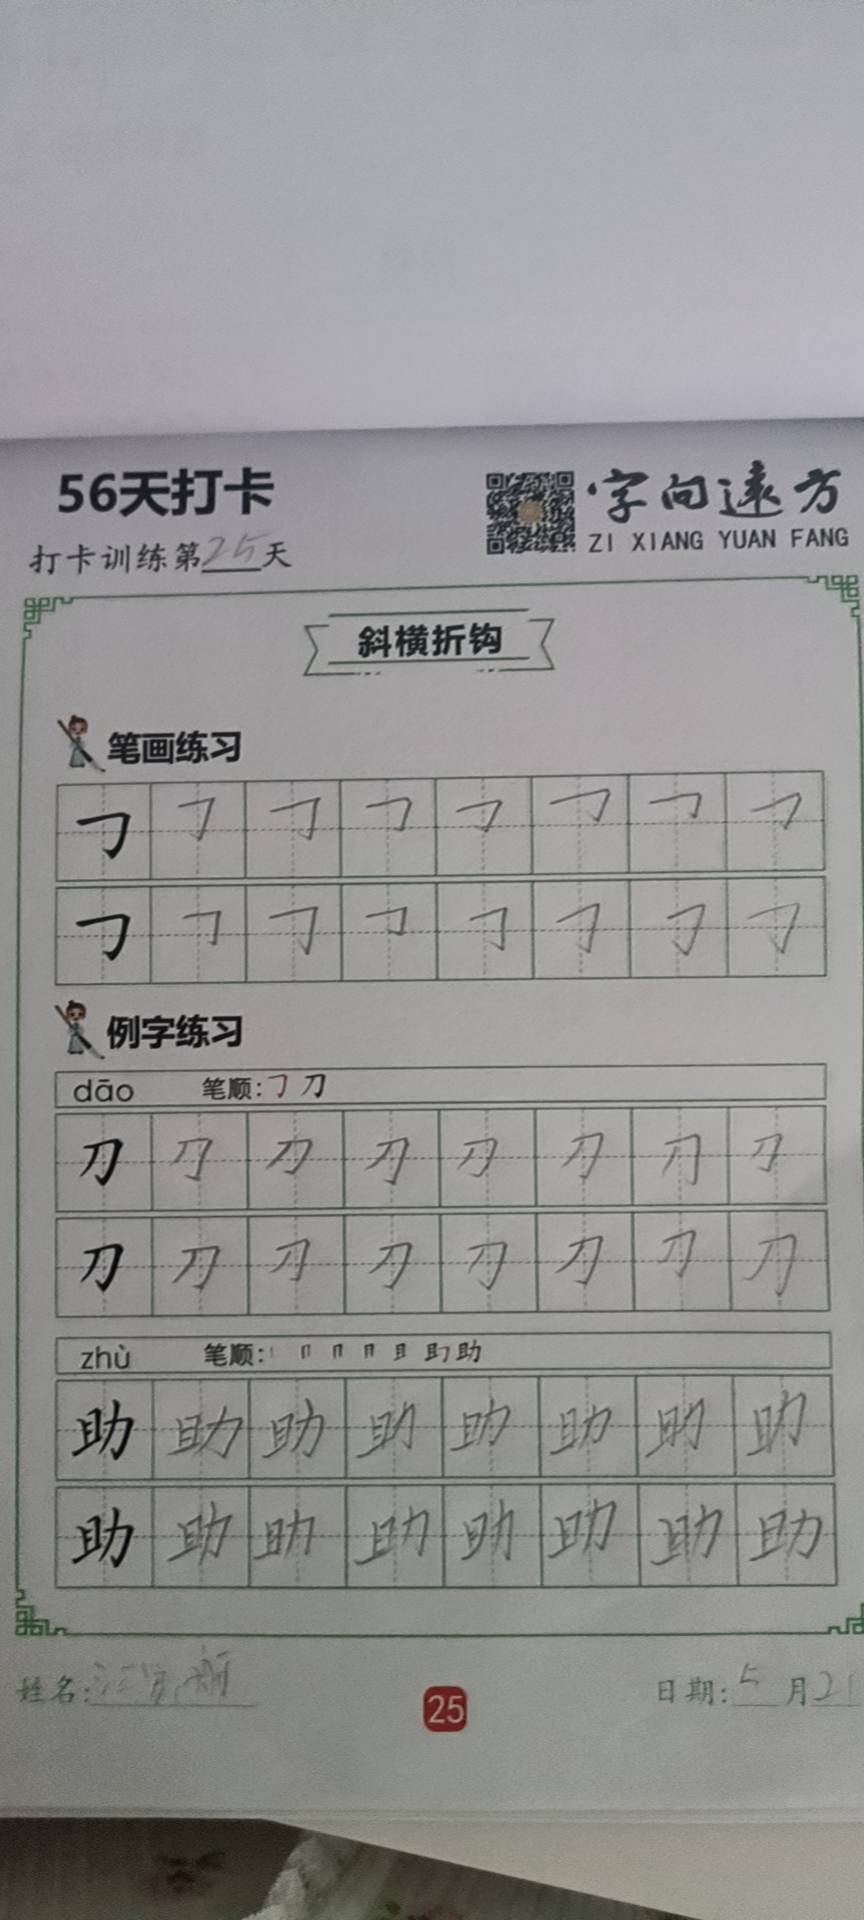 56天打卡
字向远方
ZI XIANG YUAN FANG
打卡训练第25天
斜横折钩
笔画练习
例字练习
dāo 笔顺:㇆刀
刀刀刀刀刀刀刀刀
刀刀刀刀刀刀刀刀
zhù 笔顺:助
助助助助助助助助
助助助助助助助助
姓名:
25
日期:5月21